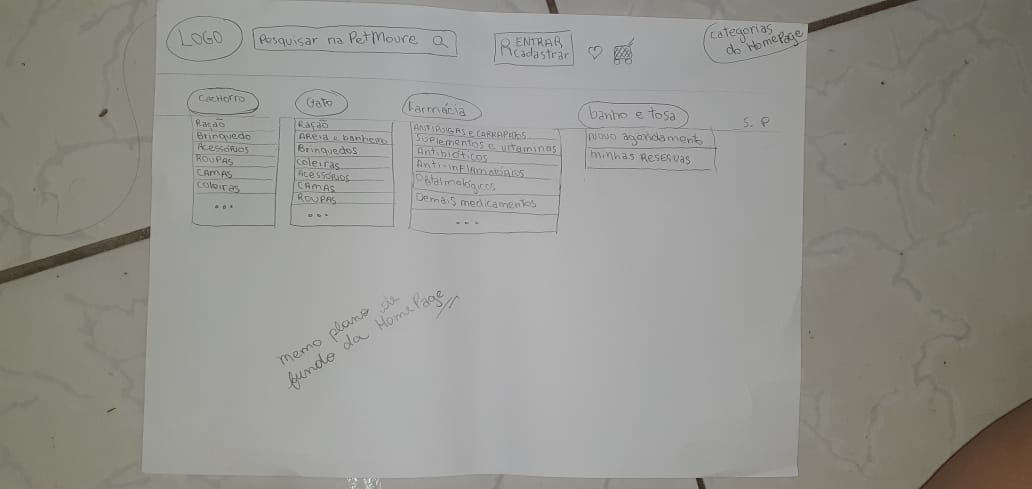 LOGO
Pesquisar na PetMoure
ENTRAR
cadastrar
categorias
do HomePage
cachorro
Ração
Brinquedo
Acessórios
ROUPAS
CAMAS
coleiras
...
Gato
Ração
AREIA e banheiro
Brinquedos
coleiras
Acessórios
CAMAS
ROUPAS
...
Farmácia
ANTIPULGAS e CARRAPATOS
Suplementos e vitaminas
Antibióticos
Anti-inflamatórios
Oftalmológicos
Demais medicamentos
...
banho e tosa
Novo agendament
minhas RESERVAS
S. P
memo plano de
fundo da HomePage